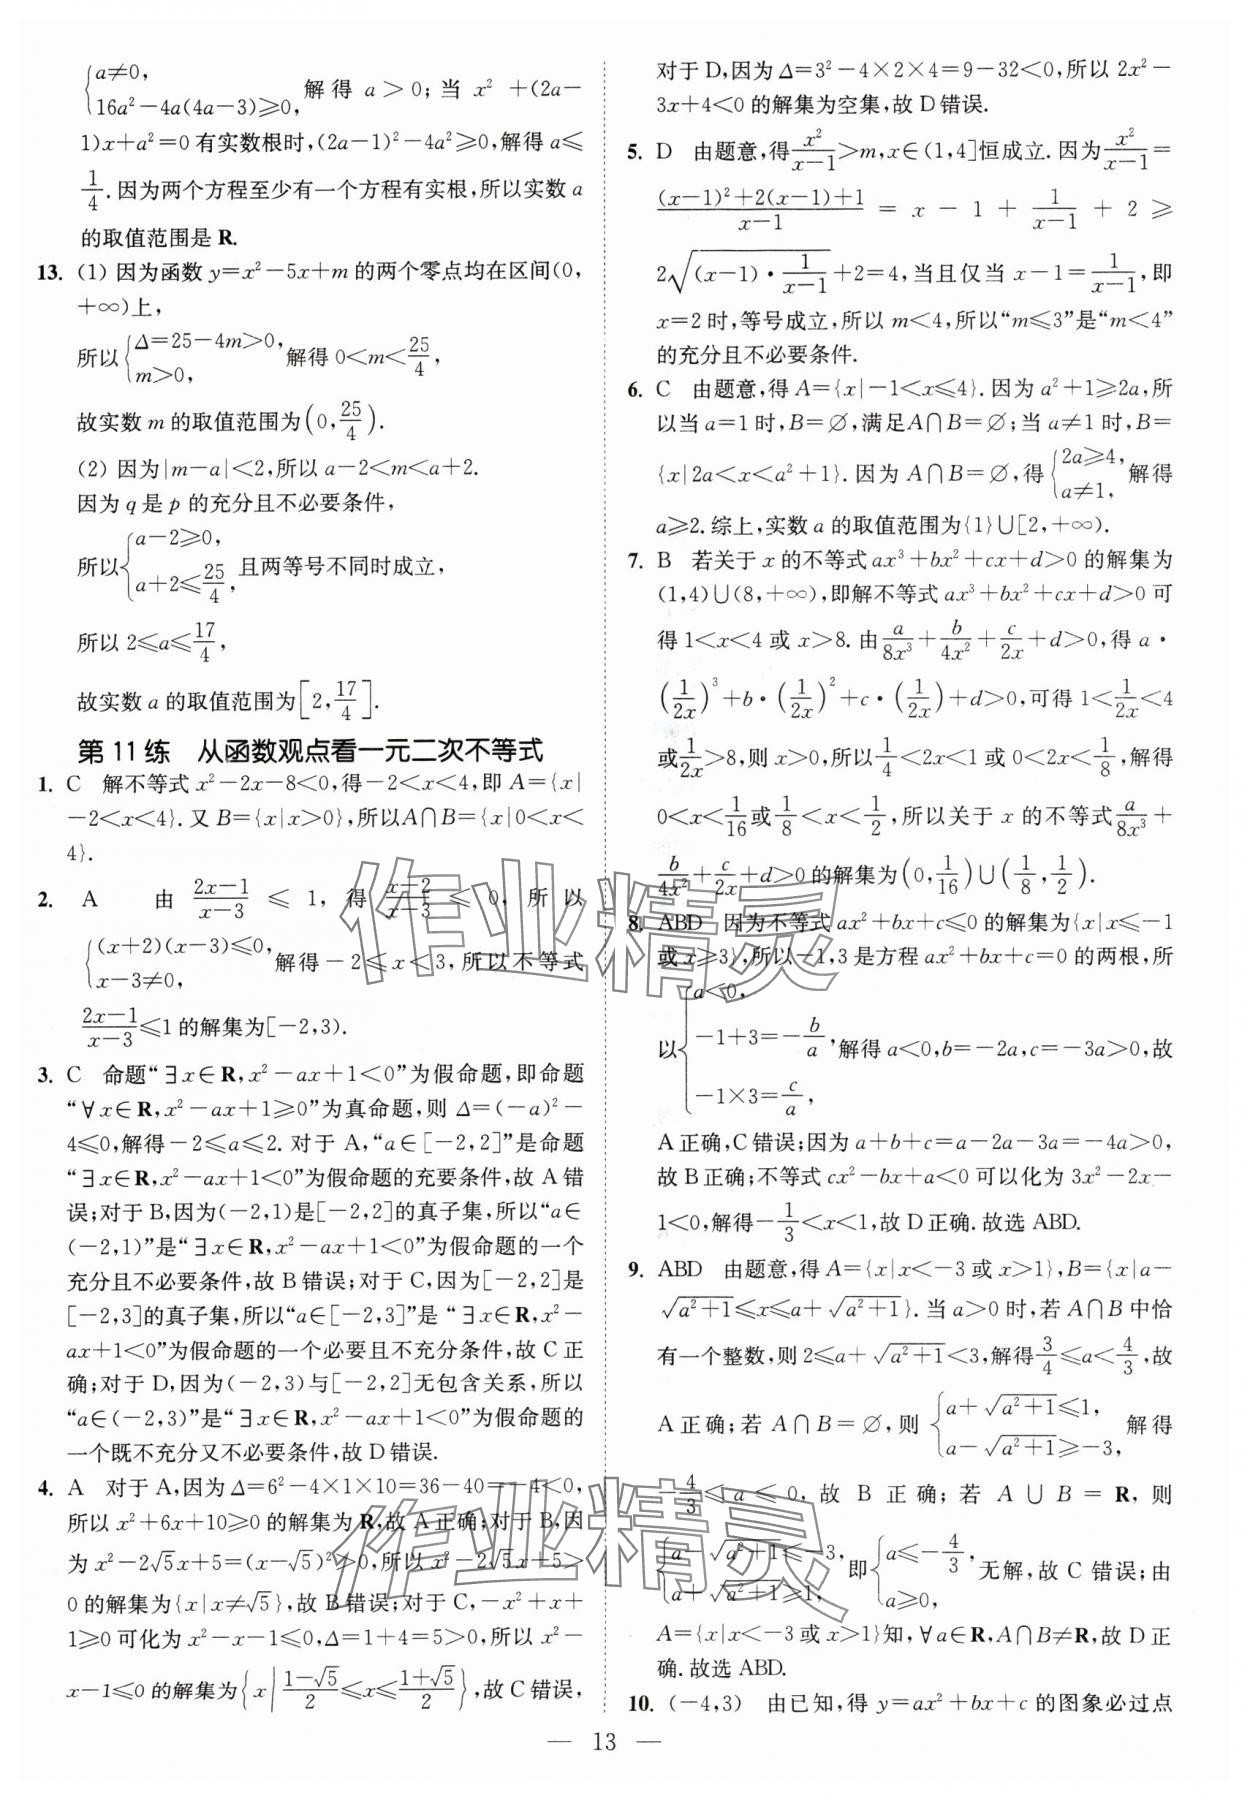 {a≠0,
16a²−4a(4a−3)⩾0, 解得 a＞0；当 x²＋(2a−
1)x＋a²＝0 有实数根时,(2a−1)²−4a²⩾0,解得 a⩽
1/4.因为两个方程至少有一个方程有实根,所以实数 a
的取值范围是 R.
13. (1) 因为函数 y＝x²−5x＋m 的两个零点均在区间(0,
＋∞)上,
所以{Δ＝25−4m＞0, m＞0, 解得 0＜m＜25/4,
故实数 m 的取值范围为(0,25/4).
(2) 因为|m−a|＜2,所以 a−2＜m＜a＋2.
因为 q 是 p 的充分且不必要条件,
所以{a−2⩾0, a＋2⩽25/4, 且两等号不同时成立,
所以 2⩽a⩽17/4,
故实数 a 的取值范围为[2,17/4].
第 11 练　从函数观点看一元二次不等式
1. C　解不等式 x²−2x−8＜0,得−2＜x＜4,即 A＝{x|
−2＜x＜4}.又 B＝{x|x＞0},所以A∩B＝{x|0＜x＜
4}.
2. A　由 (2x−1)/(x−3) ⩽ 1, 得 (x−2)/(x−3) ⩽ 0, 所以
{(x＋2)(x−3)⩽0, x−3≠0, 解得−2⩽x＜3,所以不等式
(2x−1)/(x−3)⩽1 的解集为[−2,3).
3. C　命题“∃x∈R,x²−ax＋1＜0”为假命题,即命题
“∀x∈R,x²−ax＋1⩾0”为真命题,则 Δ＝(−a)²−
4⩽0,解得−2⩽a⩽2. 对于 A,“a∈[−2,2]”是命题
“∃x∈R,x²−ax＋1＜0”为假命题的充要条件,故 A 错
误;对于 B,因为(−2,1)是[−2,2]的真子集,所以“a∈
(−2,1)”是“∃x∈R,x²−ax＋1＜0”为假命题的一个
充分且不必要条件,故 B 错误;对于 C,因为[−2,2]是
[−2,3]的真子集,所以“a∈[−2,3]”是“∃x∈R,x²−
ax＋1＜0”为假命题的一个必要且不充分条件,故 C 正
确;对于 D,因为(−2,3)与[−2,2]无包含关系,所以
“a∈(−2,3)”是“∃x∈R,x²−ax＋1＜0”为假命题的
一个既不充分又不必要条件,故 D 错误.
4. A　对于 A,因为 Δ＝6²−4×1×10＝36−40＝−4＜0,
所以 x²＋6x＋10⩾0 的解集为 R,故 A 正确;对于 B,因
为 x²−2√5x＋5＝(x−√5)²⩾0,所以 x²−2√5x＋5＞
0 的解集为{x|x≠√5},故 B 错误;对于 C,−x²＋x＋
1⩾0 可化为 x²−x−1⩽0,Δ＝1＋4＝5＞0,所以 x²−
x−1⩽0 的解集为{x|(1−√5)/2⩽x⩽(1＋√5)/2},故 C 错误,
对于 D,因为 Δ＝3²−4×2×4＝9−32＜0,所以 2x²−
3x＋4＜0 的解集为空集,故 D 错误.
5. D　由题意,得 x²/(x−1)＞m,x∈(1,4]恒成立.因为 x²/(x−1)＝
((x−1)²＋2(x−1)＋1)/(x−1) ＝ x − 1 ＋ 1/(x−1) ＋ 2 ⩾
2√((x−1)·1/(x−1))＋2＝4,当且仅当 x−1＝1/(x−1),即
x＝2 时,等号成立,所以 m＜4,所以“m⩽3”是“m＜4”
的充分且不必要条件.
6. C　由题意,得 A＝{x|−1＜x⩽4}.因为 a²＋1⩾2a,所
以当 a＝1 时,B＝∅,满足A∩B＝∅;当 a≠1 时,B＝
{x|2a＜x＜a²＋1}. 因为 A∩B＝∅,得{2a⩾4, a≠1, 解得
a⩾2.综上,实数 a 的取值范围为{1}∪[2,＋∞).
7. B　若关于 x 的不等式 ax³＋bx²＋cx＋d＞0 的解集为
(1,4)∪(8,＋∞),即解不等式 ax³＋bx²＋cx＋d＞0 可
得 1＜x＜4 或 x＞8. 由 a/8x³＋b/4x²＋c/2x＋d＞0,得 a·
(1/2x)³＋b·(1/2x)²＋c·(1/2x)＋d＞0,可得 1＜1/2x＜4
或 1/2x＞8,则 x＞0,所以 1/4＜2x＜1 或 0＜2x＜1/8,解得
0＜x＜1/16 或 1/8＜x＜1/2,所以关于 x 的不等式 a/8x³＋
b/4x²＋c/2x＋d＞0 的解集为(0,1/16)∪(1/8,1/2).
8. ABD　因为不等式 ax²＋bx＋c⩽0 的解集为{x|x⩽−1
或 x⩾3},所以−1,3 是方程 ax²＋bx＋c＝0 的两根,所
以{a＜0, −1＋3＝−b/a, −1×3＝c/a, 解得 a＜0,b＝−2a,c＝−3a＞0,故
A 正确,C 错误;因为 a＋b＋c＝a−2a−3a＝−4a＞0,
故 B 正确;不等式 cx²−bx＋a＜0 可以化为 3x²−2x−
1＜0,解得−1/3＜x＜1,故 D 正确.故选 ABD.
9. ABD　由题意,得 A＝{x|x＜−3 或 x＞1},B＝{x|a−
√(a²＋1)⩽x⩽a＋√(a²＋1)}.当 a＞0 时,若 A∩B 中恰
有一个整数,则 2⩽a＋√(a²＋1)＜3,解得 3/4⩽a＜4/3,故
A 正确;若 A∩B＝∅,则{a＋√(a²＋1)⩽1, a−√(a²＋1)⩾−3, 解得
−4/3⩽a⩽0,故 B 正确;若 A∪B＝R,则
{a−√(a²＋1)⩽−3, a＋√(a²＋1)⩾1, 即{a⩽−4/3, a⩾0, 无解,故 C 错误;由
A＝{x|x＜−3 或 x＞1}知,∀a∈R,A∩B≠R,故 D 正
确.故选 ABD.
10. (−4,3)　由已知,得 y＝ax²＋bx＋c 的图象必过点
— 13 —
作业精灵
作业精灵